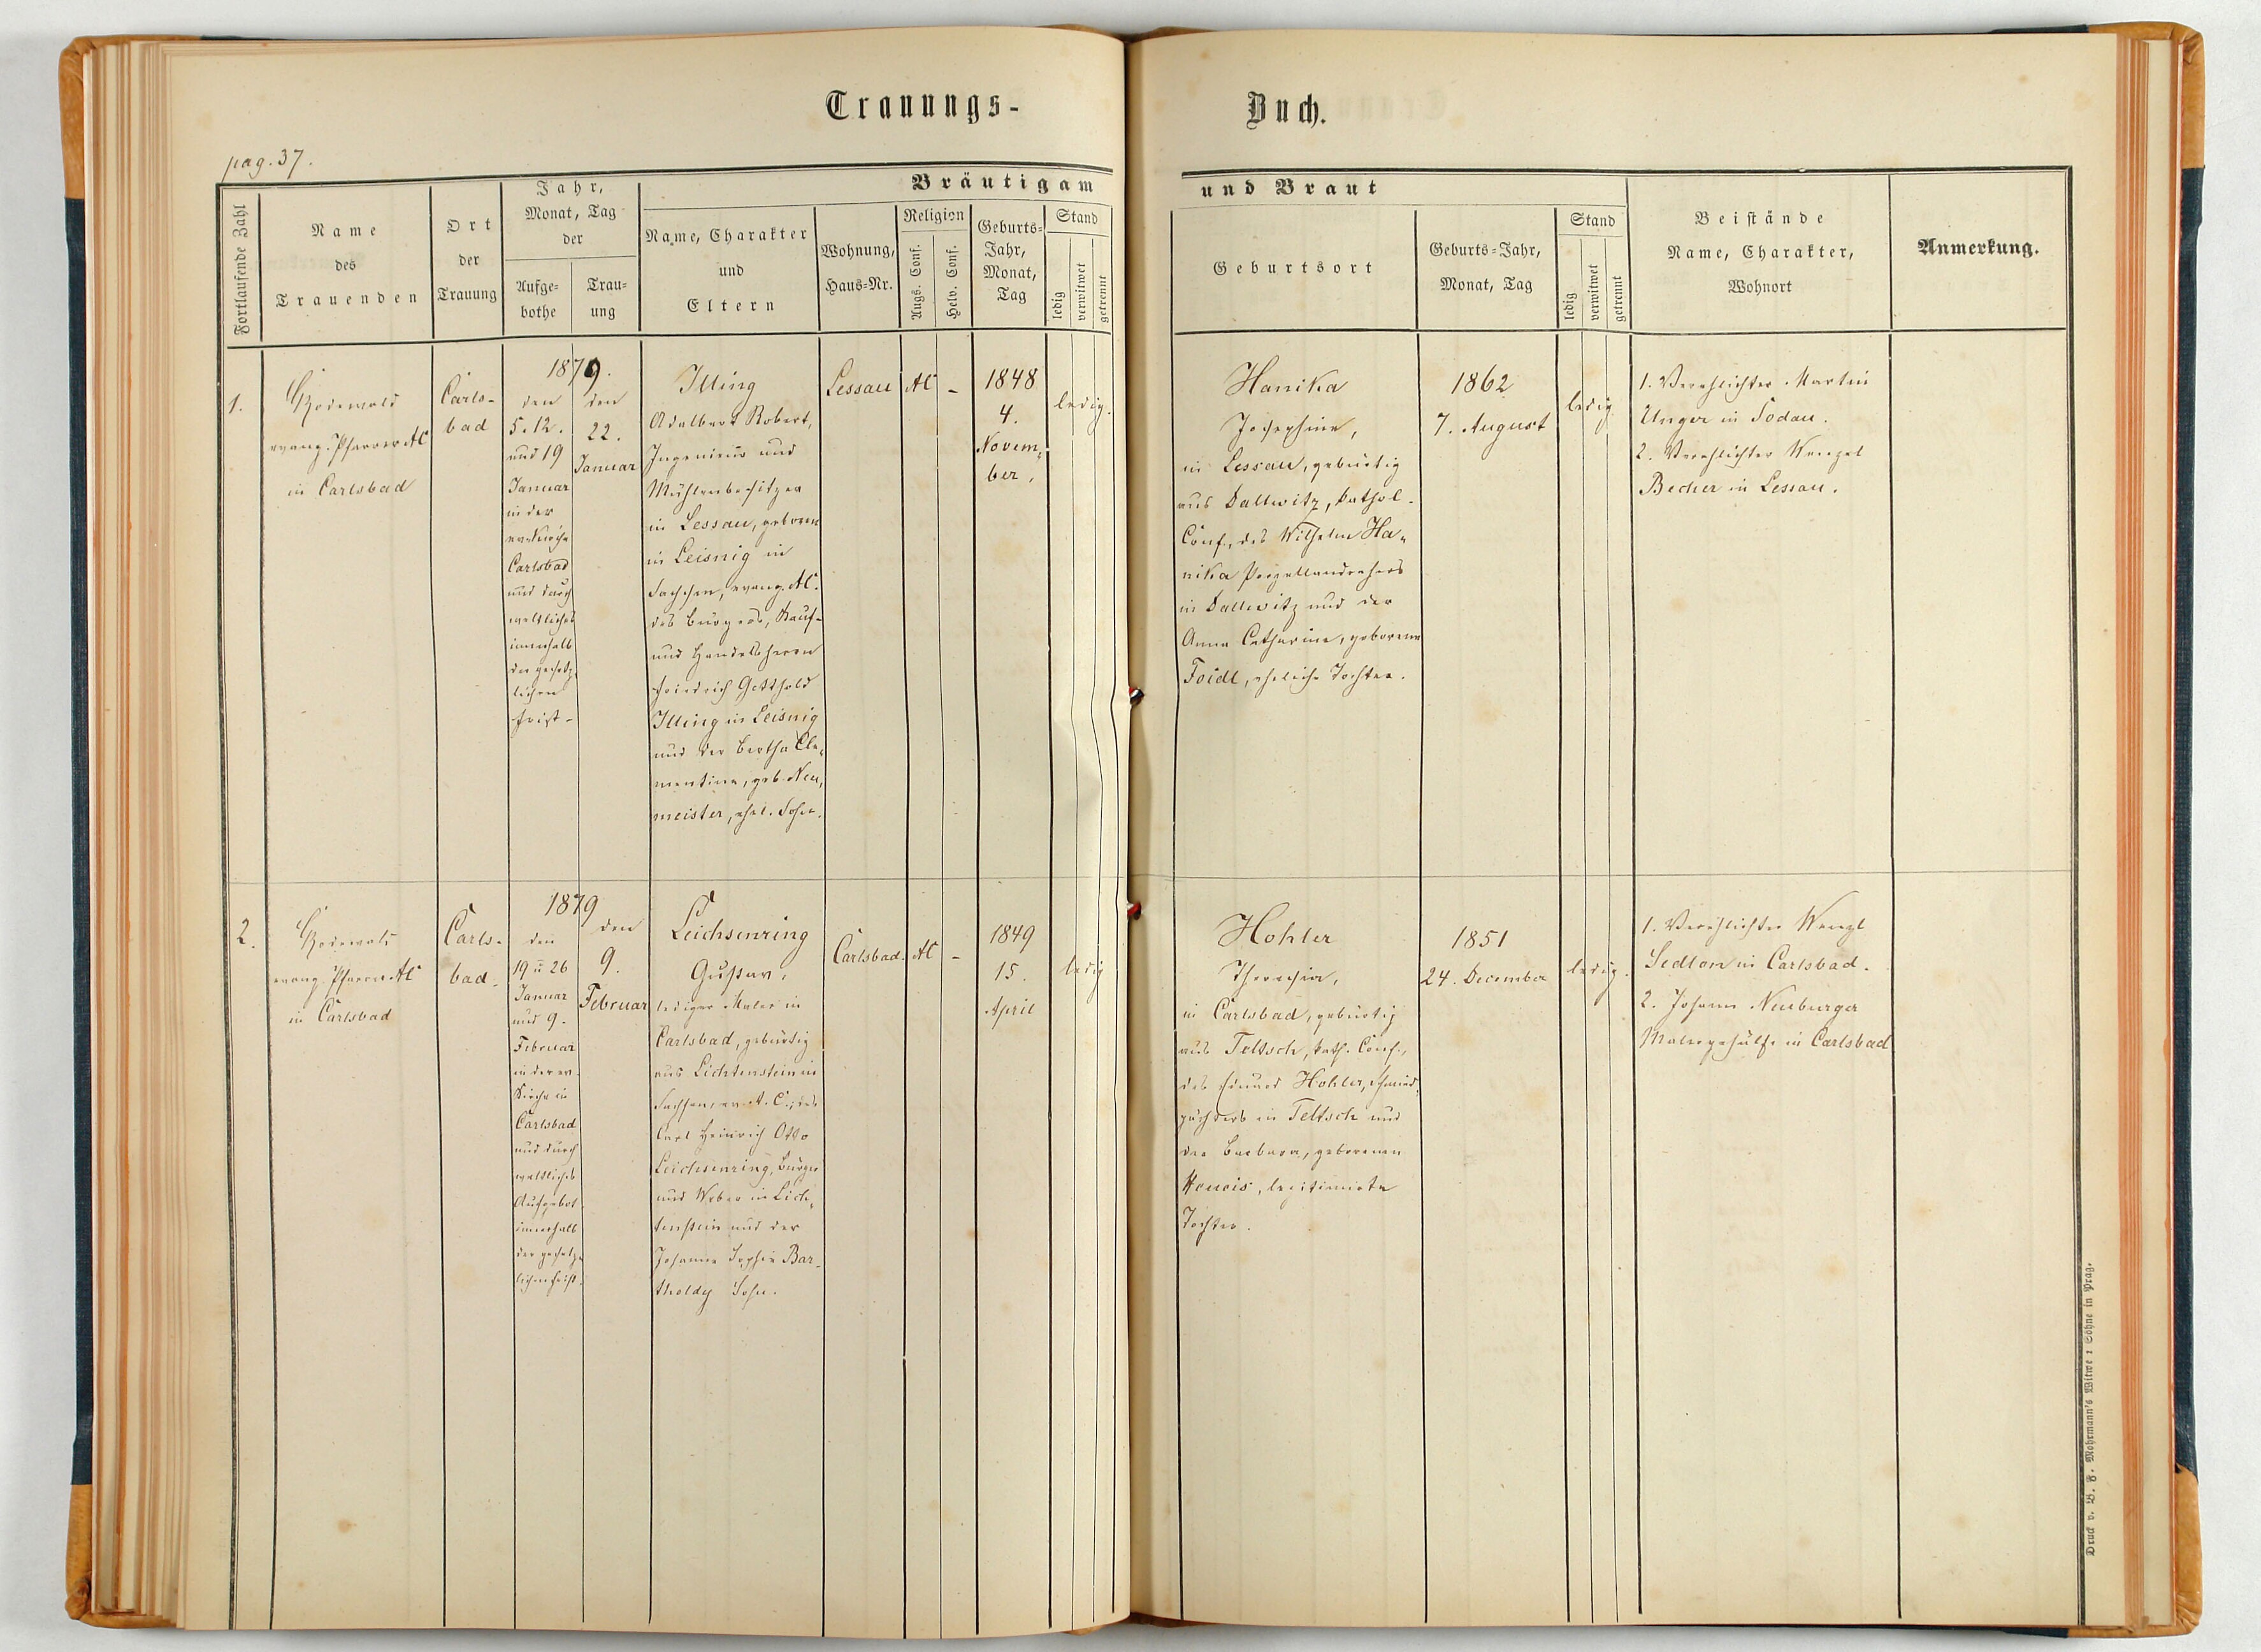 Trauungs-
Buch.
pag. 37.
Fortlaufende Zahl
Name
des
Trauenden
Ort
der
Trauung
Jahr,
Monat, Tag
der
Aufge-
bothe
Trau-
ung
Bräutigam
Name, Charakter
und
Eltern
Wohnung,
Haus-Nr.
Religion
Augs. Conf.
Helv. Conf.
Geburts-
Jahr,
Monat,
Tag
Stand
ledig
verwitwet
getrennt
und Braut
Geburtsort
Geburts-Jahr,
Monat, Tag
Stand
ledig
verwitwet
getrennt
Beistände
Name, Charakter,
Wohnort
Anmerkung.
1.
Rodewald
evang. Pfarrer AC
in Carlsbad
Carls-
bad
1879.
den
5. 12.
und 19
Januar
in der
ev. Kirche
Carlsbad
und durch
weltliches
innerhalb
der gesetz-
lichen
Frist-
den
22.
Januar
Illing
Adalbert Robert,
Ingenieur und
Mühlenbesitzer
in Lessau, geboren
in Leisnig in
Sachsen, evang. AC.
des Bürgers, Kauf-
und Handelsherrn
Friedrich Gotthold
Illing in Leisnig
und der Bertha Cle-
mentine, geb. Neu-
meister, ehel. Sohn.
Lessau
AC
-
1848
4.
Novem-
ber,
ledig.
Hanika
Josephine,
in Lessau, gebürtig
aus Dallwitz, kathol.
Conf., des Wilhelm Ha-
nika Porzellandrehers
in Dallwitz und der
Anna Catharina, geborene
Foidl, eheliche Tochter.
1862
7. August
ledig
1. Verehlichter Martin
Unger in Sodau.
2. Verehlichter Wenzel
Becher in Lessau.
2.
Rodewald
evang. Pfarrer AC
in Carlsbad
Carls-
bad.
1879
den
19 u 26
Januar
und 9.
Februar
in der ev.
Kirche in
Carlsbad
und durch
weltliches
Aufgebot
innerhalb
der gesetz-
lichen Frist.
den
9.
Februar
Leichsenring
Gustav,
lediger Maler in
Carlsbad, gebürtig
aus Lichtenstein in
Sachsen, ev. A. C., des
Carl Heinrich Otto
Leichsenring, Bürger
und Weber in Lich-
tenstein und der
Johanne Sophie Bar-
tholdy Sohn.
Carlsbad.
AC
-
1849
15.
April
ledig
Hohler
Theresia,
in Carlsbad, gebürtig
aus Teltsch, kath. Conf.,
des Eduard Hohler, Schmied-
pächters in Teltsch und
der Barbara, geborenen
legitimirte
Tochter.
1851
24. December
ledig.
1. Verehlichter Wenzl
Sedlon in Carlsbad.
2. Johann Neuburger
Malergehülfe in Carlsbad
Druck v. B. F. Mohrmann's Witwe & Söhne in Prag.